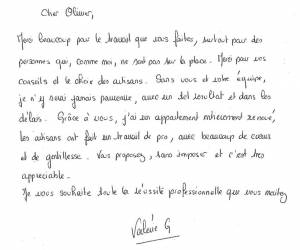 Cher Olivier,
Merci beaucoup pour le travail que vous faites, surtout pour des
personnes qui, comme moi, ne sont pas sur la place. Merci pour vos
conseils et le choix des artisans. Sans vous et votre équipe,
je n'y serai jamais parvenue, avec un tel resultat et dans les
délais. Grâce à vous, j'ai un appartement entièrement rénové,
les artisans ont fait un travail de pro, avec beaucoup de cœur
et de gentillesse. Vous proposez, sans imposer et c'est très
appréciable.
Je vous souhaite toute la réussite professionnelle que vous méritez
Valérie G